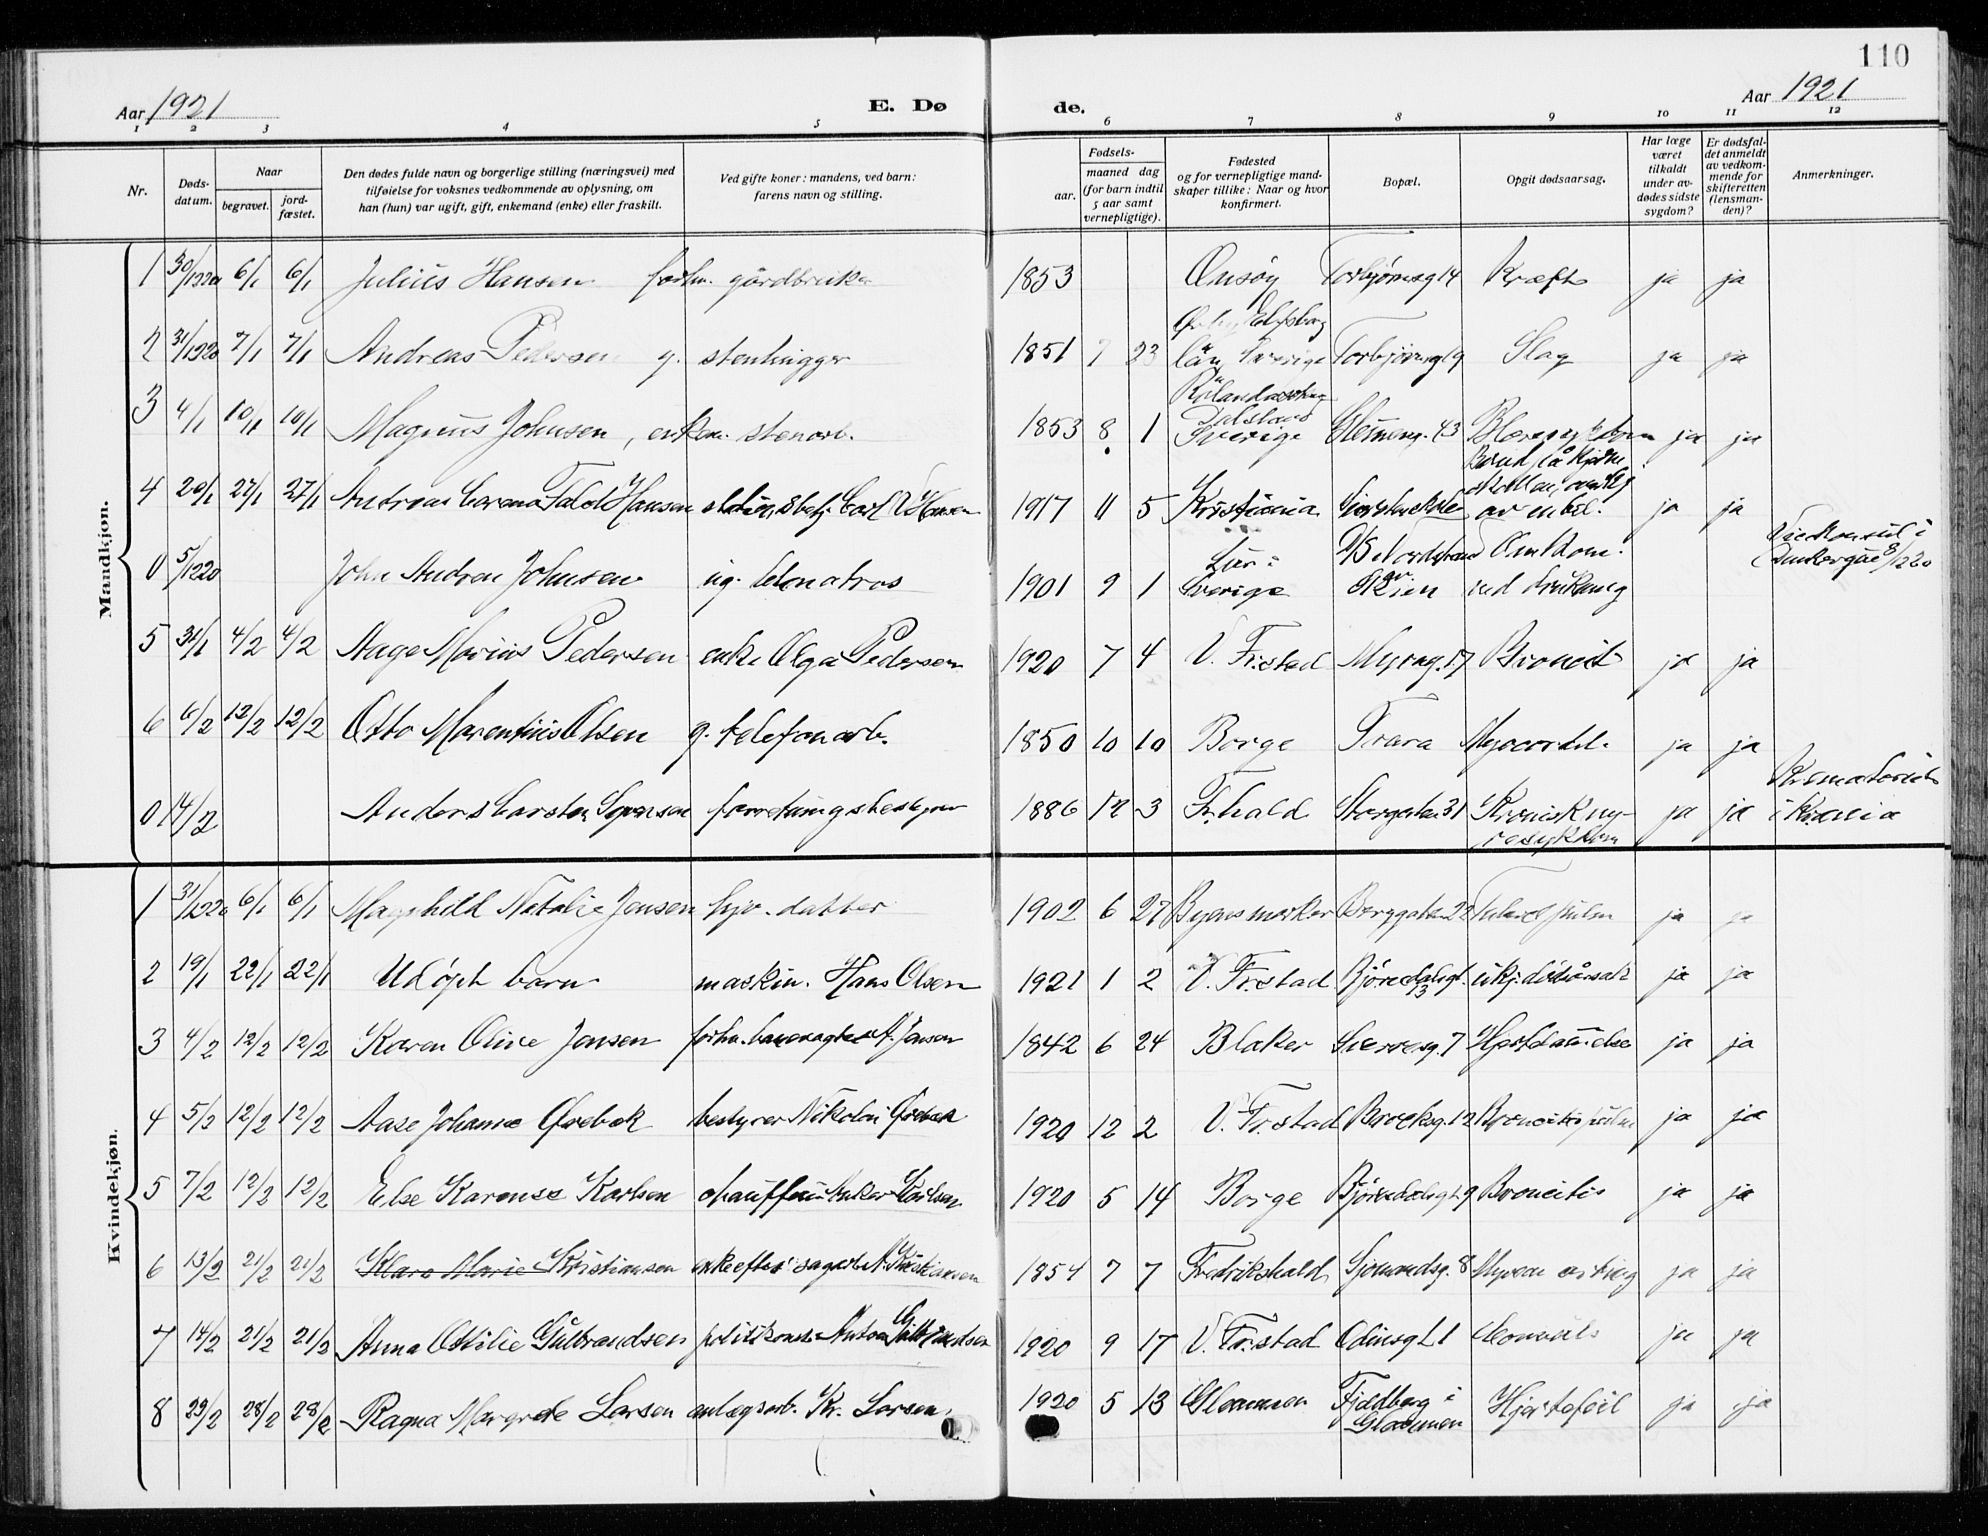 110
Aar 1921
E. Dø
de.
Aar 1921
1 2 3 4 5 6 7 8 9 10 11 12
Nr.
Døds-
datum.
Naar
begravet.
jord-
fæstet.
Den dødes fulde navn og borgerlige stilling (næringsvei) med
tilføielse for voksnes vedkommende av oplysning, om
han (hun) var ugift, gift, enkemand (enke) eller fraskilt.
Ved gifte koner: mandens, ved barn:
farens navn og stilling.
Fødsels-
aar.
maaned dag
(for barn indtil
5 aar samt
vernepligtige).
Fødested
og for vernepligtige mand-
skaper tillike: Naar og hvor
konfirmert.
Bopæl.
Opgit dødsaarsag.
Har læge
været
tilkaldt
under av-
dødes sidste
sygdom?
Er dødsfal-
det anmeldt
av vedkom-
mende for
skifteretten
(lensman-
den)?
Anmerkninger.
Mandkjøn.
1 30/12 20 6/1 6/1 Julius Hansen forhv. gårdbruker 1853 Onsøy Torbjørnsg 14 Kræft ja ja
2 31/12 20 7/1 7/1 Andreas Pedersen g. stenhugger 1851 7 23 Elfsborg län Sverige Torbjørnsg 19 Slag ja ja
3 4/1 10/1 10/1 Magnus Johnsen, enkem. stenarb. 1853 8 1 Dalsland Sverige 43 Blæresykdom ja ja
4 20/1 27/1 27/1 Hansen Carl Hansen 1917 11 5 Kristiania av en bil. ja ja
0 5/12 20 John Andrea Johnsen ug. 1901 9 1 Sverige Omkom. ved drukning Visekonsul i
5 31/1 4/2 4/2 Aage Marius Pedersen enke Olga Pedersen 1920 7 4 V. Fr.stad Myrag. 17 Broncit ja ja
6 6/2 12/2 12/2 Otto Marentius Olsen g. telefonarb. 1850 10 10 Borge Trara Myocardit. ja ja
0 14/2 Anders Carsten Sørensen forretningsbestyrer 1886 12 3 Fr.hald Storgaten 31 Kronisk ny-
resykdom ja ja Krematoriet
i Kr.ania
Kvindekjøn.
1 31/12 20 6/1 6/1 Magnhild Natalie Jensen hjv. datter 1902 6 27 Byens marker Berggaten 22 ja ja
2 19/1 22/1 22/1 Udøpt barn maskin. Hans Olsen 1921 1 2 V. Fr.stad Bjørnedalsgt. 13 ukj. dødsårsak ja ja
3 4/2 12/2 12/2 Karen Olive Jensen forhv. banevogter A. Jensen 1842 6 24 Blaker 7 Hjertelammelse ja ja
4 5/2 12/2 12/2 Aase Johanne Ørebek bestyrer Nikolai Ørebek 1920 12 2 V. Fr.stad Brocksg. 12 ja ja
5 7/2 12/2 12/2 Else Karense Karlsen chauffør Anker Karlsen 1920 5 14 Borge Bjørnedalsgt. 9 Broncitis ja ja
6 13/2 21/2 21/2 Klara Marie Kristiansen enke efter sagarb. A. Kristiansen 1854 7 7 Fredrikshald 8 ja ja
7 14/2 21/2 21/2 Anna Otilie Gulbrandsen politikonst. Anton Gulbrandsen 1920 9 17 V. Fr.stad Odinsgt. 1 ja ja
8 22/2 28/2 28/2 Ragna Margrete Larsen anlægsarb. Kr. Larsen 1920 5 13 Glemmen Fjeldberg i
Glemmen Hjertefeil ja ja